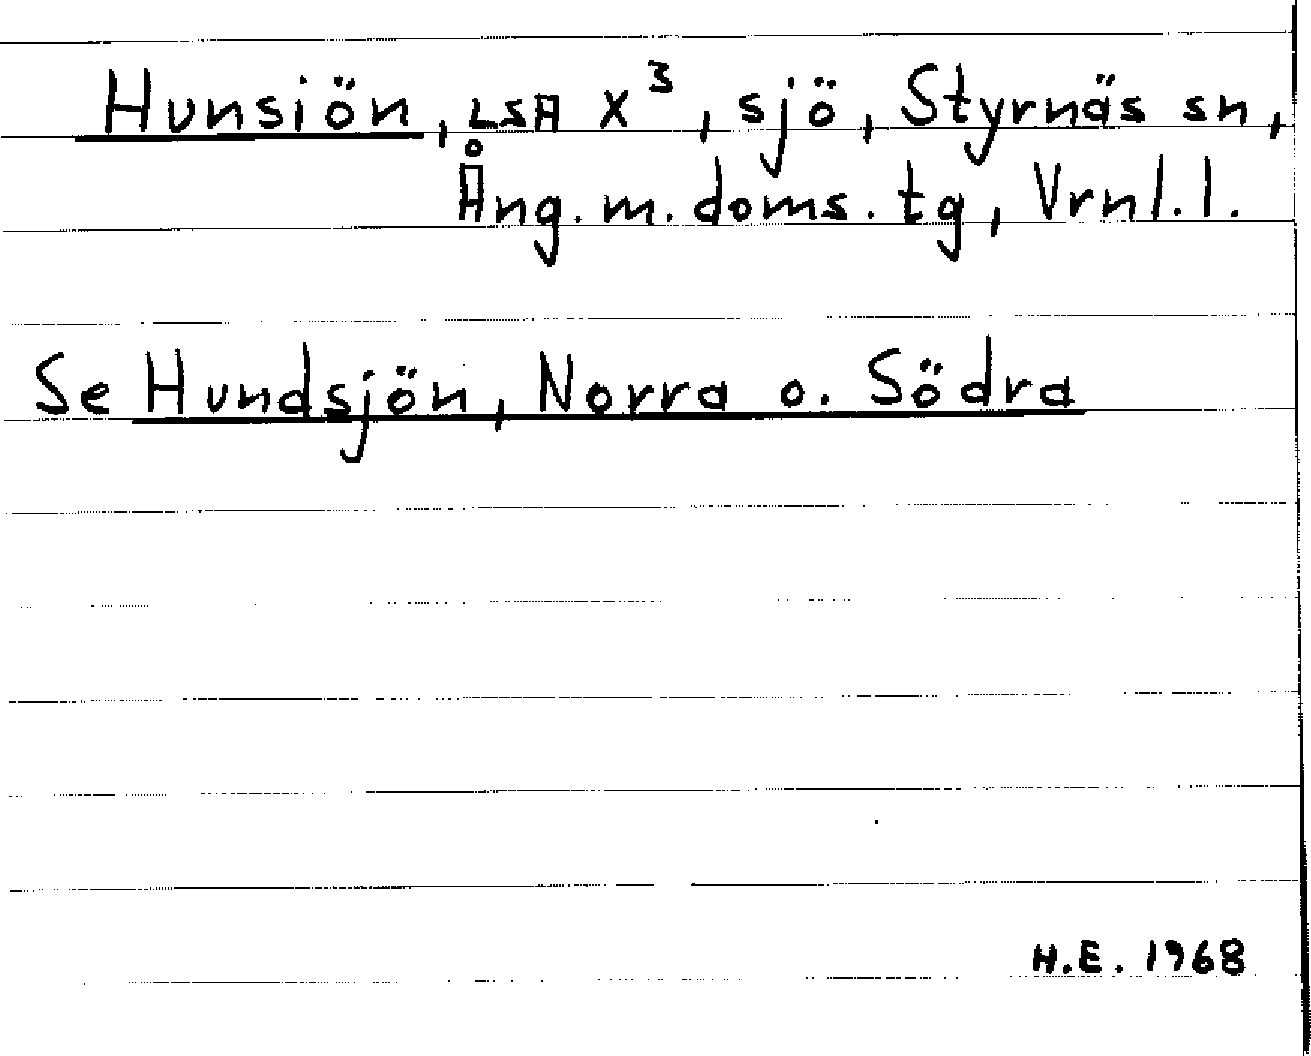 Hunsiön, LSA X³, sjö, Styrnäs sn,
Ång. m. doms. tg, Vrnl. l.
Se Hundsjön, Norra o. Södra
H.E. 1968